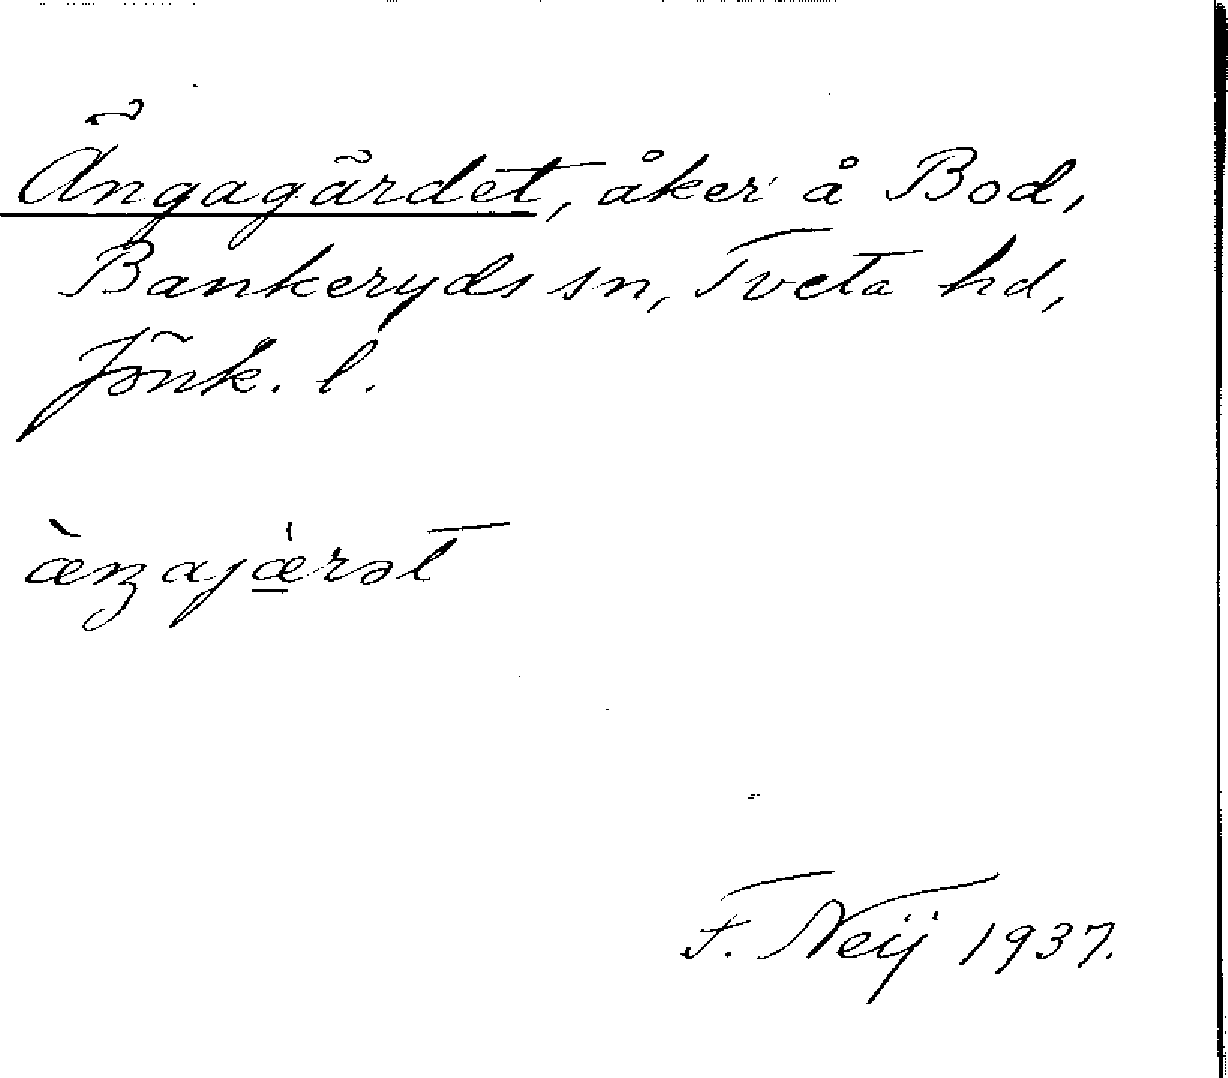 Ängagärdet, åker å Bod,
Bankeryds sn, Tveta hd,
Jönk. l.
æ̀ŋajæ̲̍rət
F. Neij 1937.